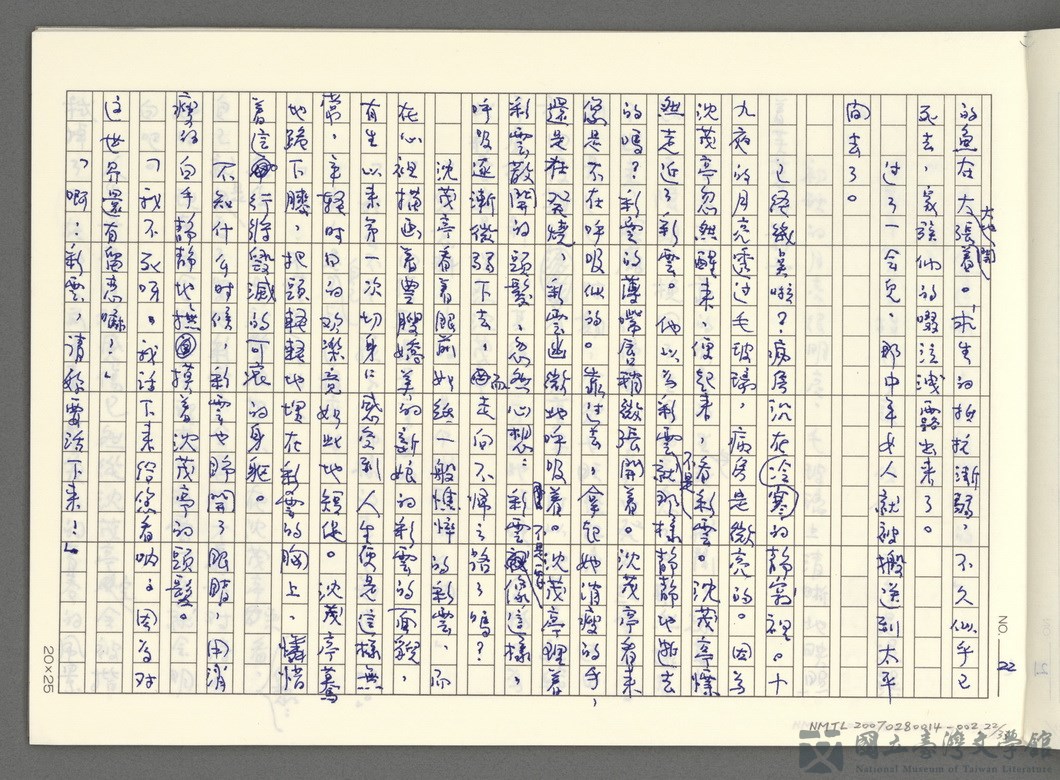 NO. 22
的魚在大大地張開著。求生的拍托漸弱,不久似乎已
死去,家族们的啜泣洩露出来了。
过了一会兒,那中年女人就被搬送到太平
间去了。
已经嚥臭啦?病房沉在冷寒的静寂裡。十
九夜的月亮透过毛玻璃,病房是微亮的。因为
沈茂亭忽然醒来,便起来,看彩雲。沈茂亭悚
然走近了彩雲。他以为彩雲不是就那樣静静地逝去
的嗎?彩雲的薄嘴唇稍微張開着。沈茂亭看来
像是不在呼吸似的。靠过去,拿起她消瘦的手,
還是在發燒,彩雲幽微地呼吸着。沈茂亭理着
彩雲散開的頭髮,忽然心想:彩雲不是一定像這樣,
呼吸逐漸微弱下去,而走向不帰之路了嗎?
沈茂亭看着眼前如紙一般憔悴的彩雲,而
在心裡描画着豊艘嬌美的新娘的彩雲的面貌,
有生以来第一次切身に感受到人生便是這樣無
常,年輕时日的欢樂竟如此地短促。沈茂亭驀
地跪下膝,把頭輕輕地埋在彩雲的胸上,憐惜
着這行將毀滅的可哀的身軀。
不知什么时候,彩雲也睁開了眼睛,用消
瘦的白手静静地撫摸着沈茂亭的頭髮。
「我不死呀。我活下来给您看吶。因为对
这世界還有留恋嘛?」
「啊:彩雲,请妳要活下来!」
20×25
NMTL 20070280014-002 22/
國立臺灣文學館
National Museum of Taiwan Literature